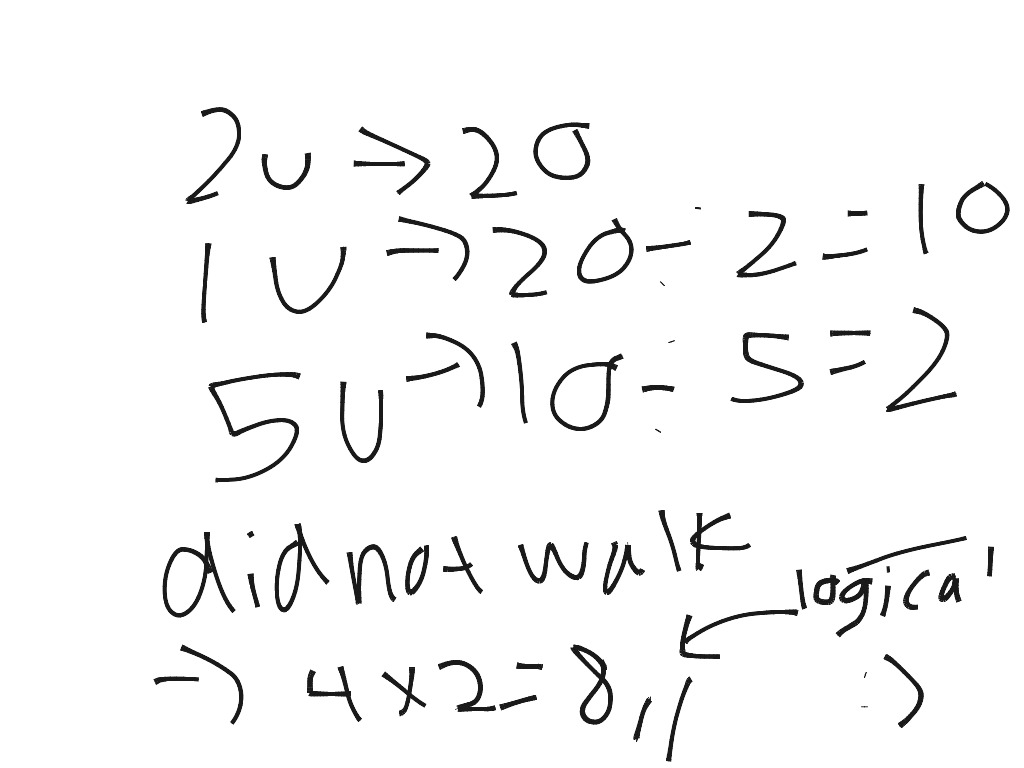 2u → 20
1u → 20 ÷ 2 = 10
5u → 10 ÷ 5 = 2
did not walk
logical
→ 4 x 2 = 8 // :)